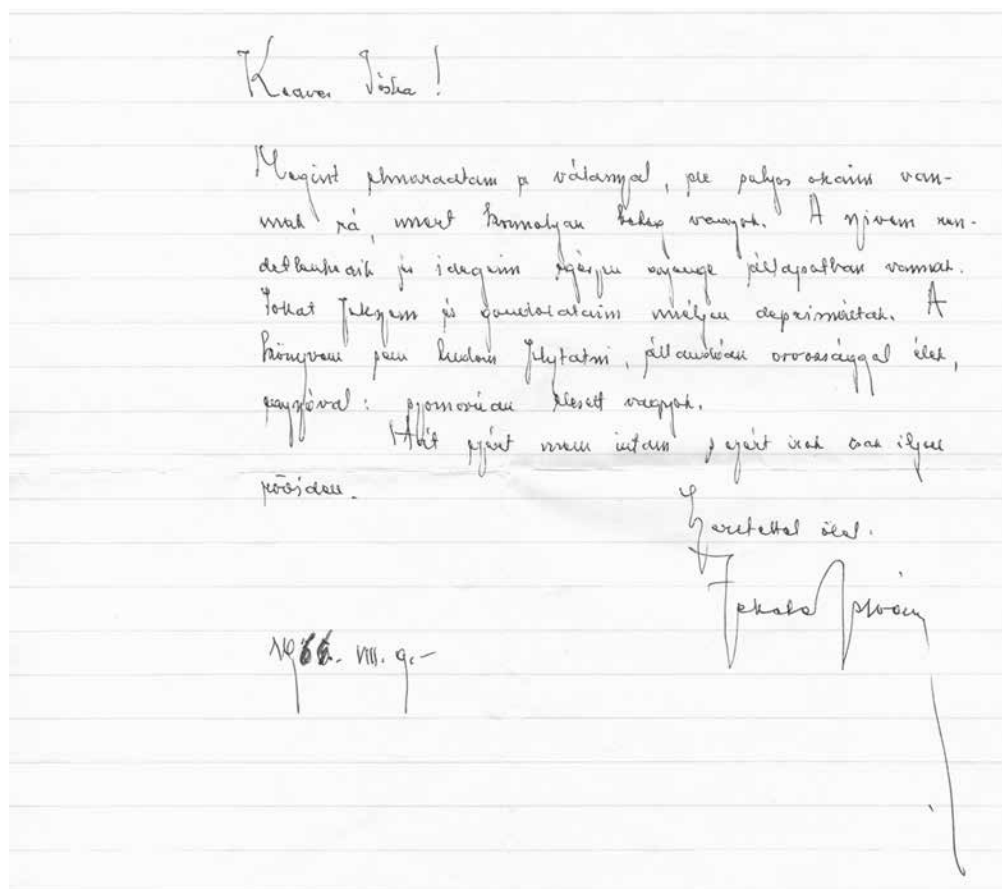 Kedves Jóska!
Megint elmaradtam a válasszal, de súlyos okaim van-
nak rá, mert komolyan beteg vagyok. A szivem ren-
detlenkedik és idegeim egészen gyenge állapotban vannak.
Sokat fekszem és gondolataim mélyen deprimáltak. A
könyvem sem tudom folytatni, állandóan orvossággal élek,
egyszóval: szomorúan elesett vagyok.
Hát ezért nem irtam s ezért irok csak ilyen
röviden.
Szeretettel ölel.
István
1966. VIII. 9.-